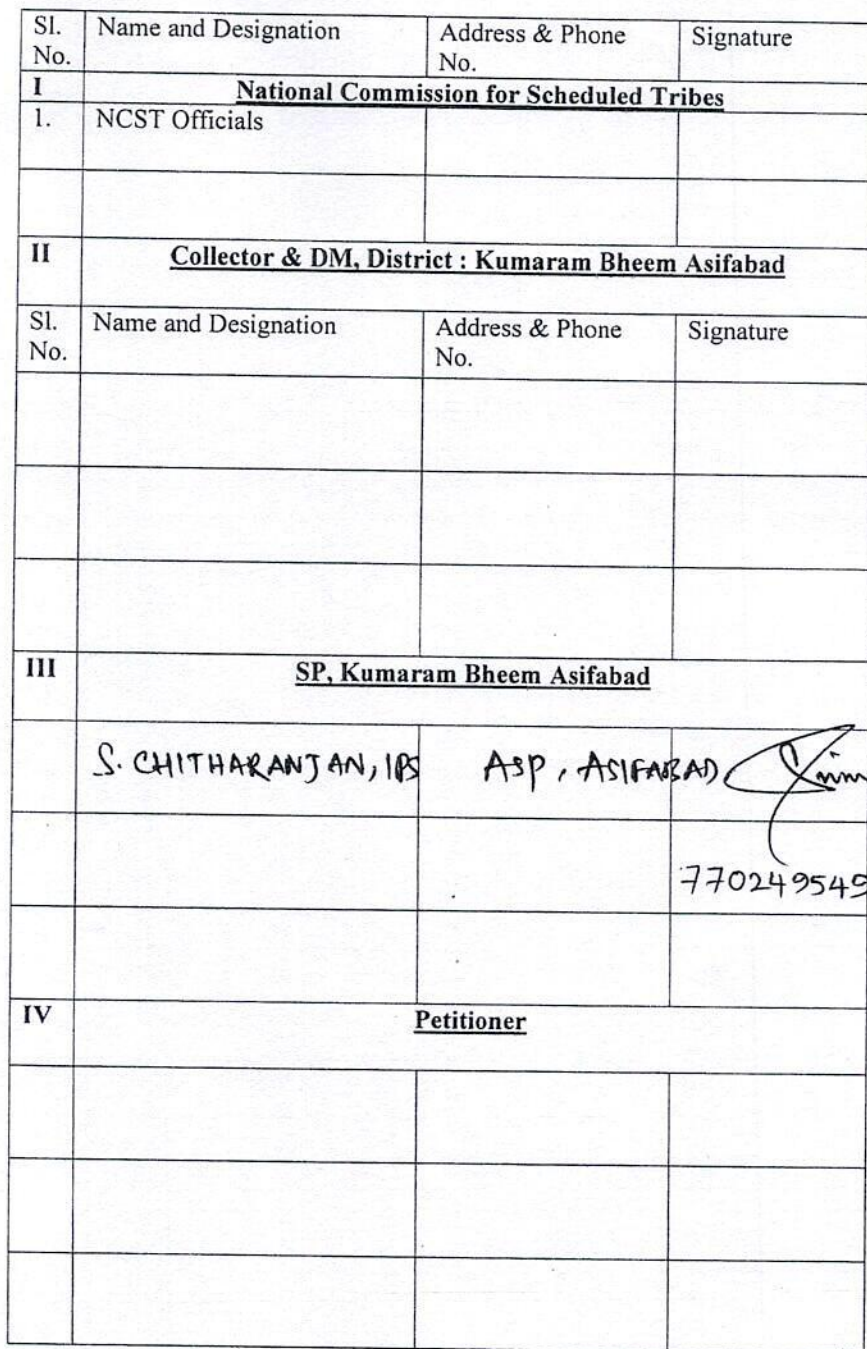 Sl. No. Name and Designation Address & Phone No. Signature
I National Commission for Scheduled Tribes
1. NCST Officials
II Collector & DM, District : Kumaram Bheem Asifabad
Sl. No. Name and Designation Address & Phone No. Signature
III SP, Kumaram Bheem Asifabad
S. CHITHARANJAN, IPS ASP, ASIFABAD
770249549
IV Petitioner